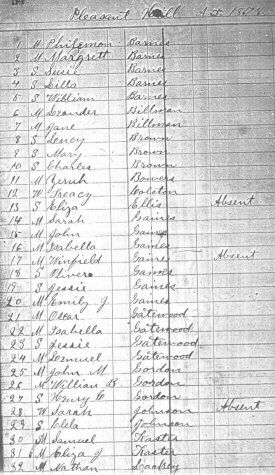 Pleasant Hill A.D. 1874
1 M Philemon Barnes
2 M Margrett Barnes
3 S Susie Barnes
4 S Lills Barnes
5 S William Barnes
6 M Leander Billman
7 M Jane Billman
8 S Leucy Brown
9 S Mary Brown
10 S Charles Brown
11 M Beruh Bowers
12 W Treacy Colston
13 S Eliza Ellis Absent
14 M Sarah Gaines
15 M John Games
16 M Isabella Games
17 M Winfield Gaines Absent
18 S Olivero Games
19 S Jessie Games
20 M Emily J Games
21 M Oscar Gatewood
22 M Isabella Gatewood
23 S Jessie Gatewood
24 M Lemuel Gatewood
25 M John M Gordon
26 M William B Gordon
27 S Henry C Gordon
28 W Sarah Johnson Absent
29 S Clela Johnson
30 M Samuel Kaster
31 M Eliza J Kaster
32 M Nathan Lackey